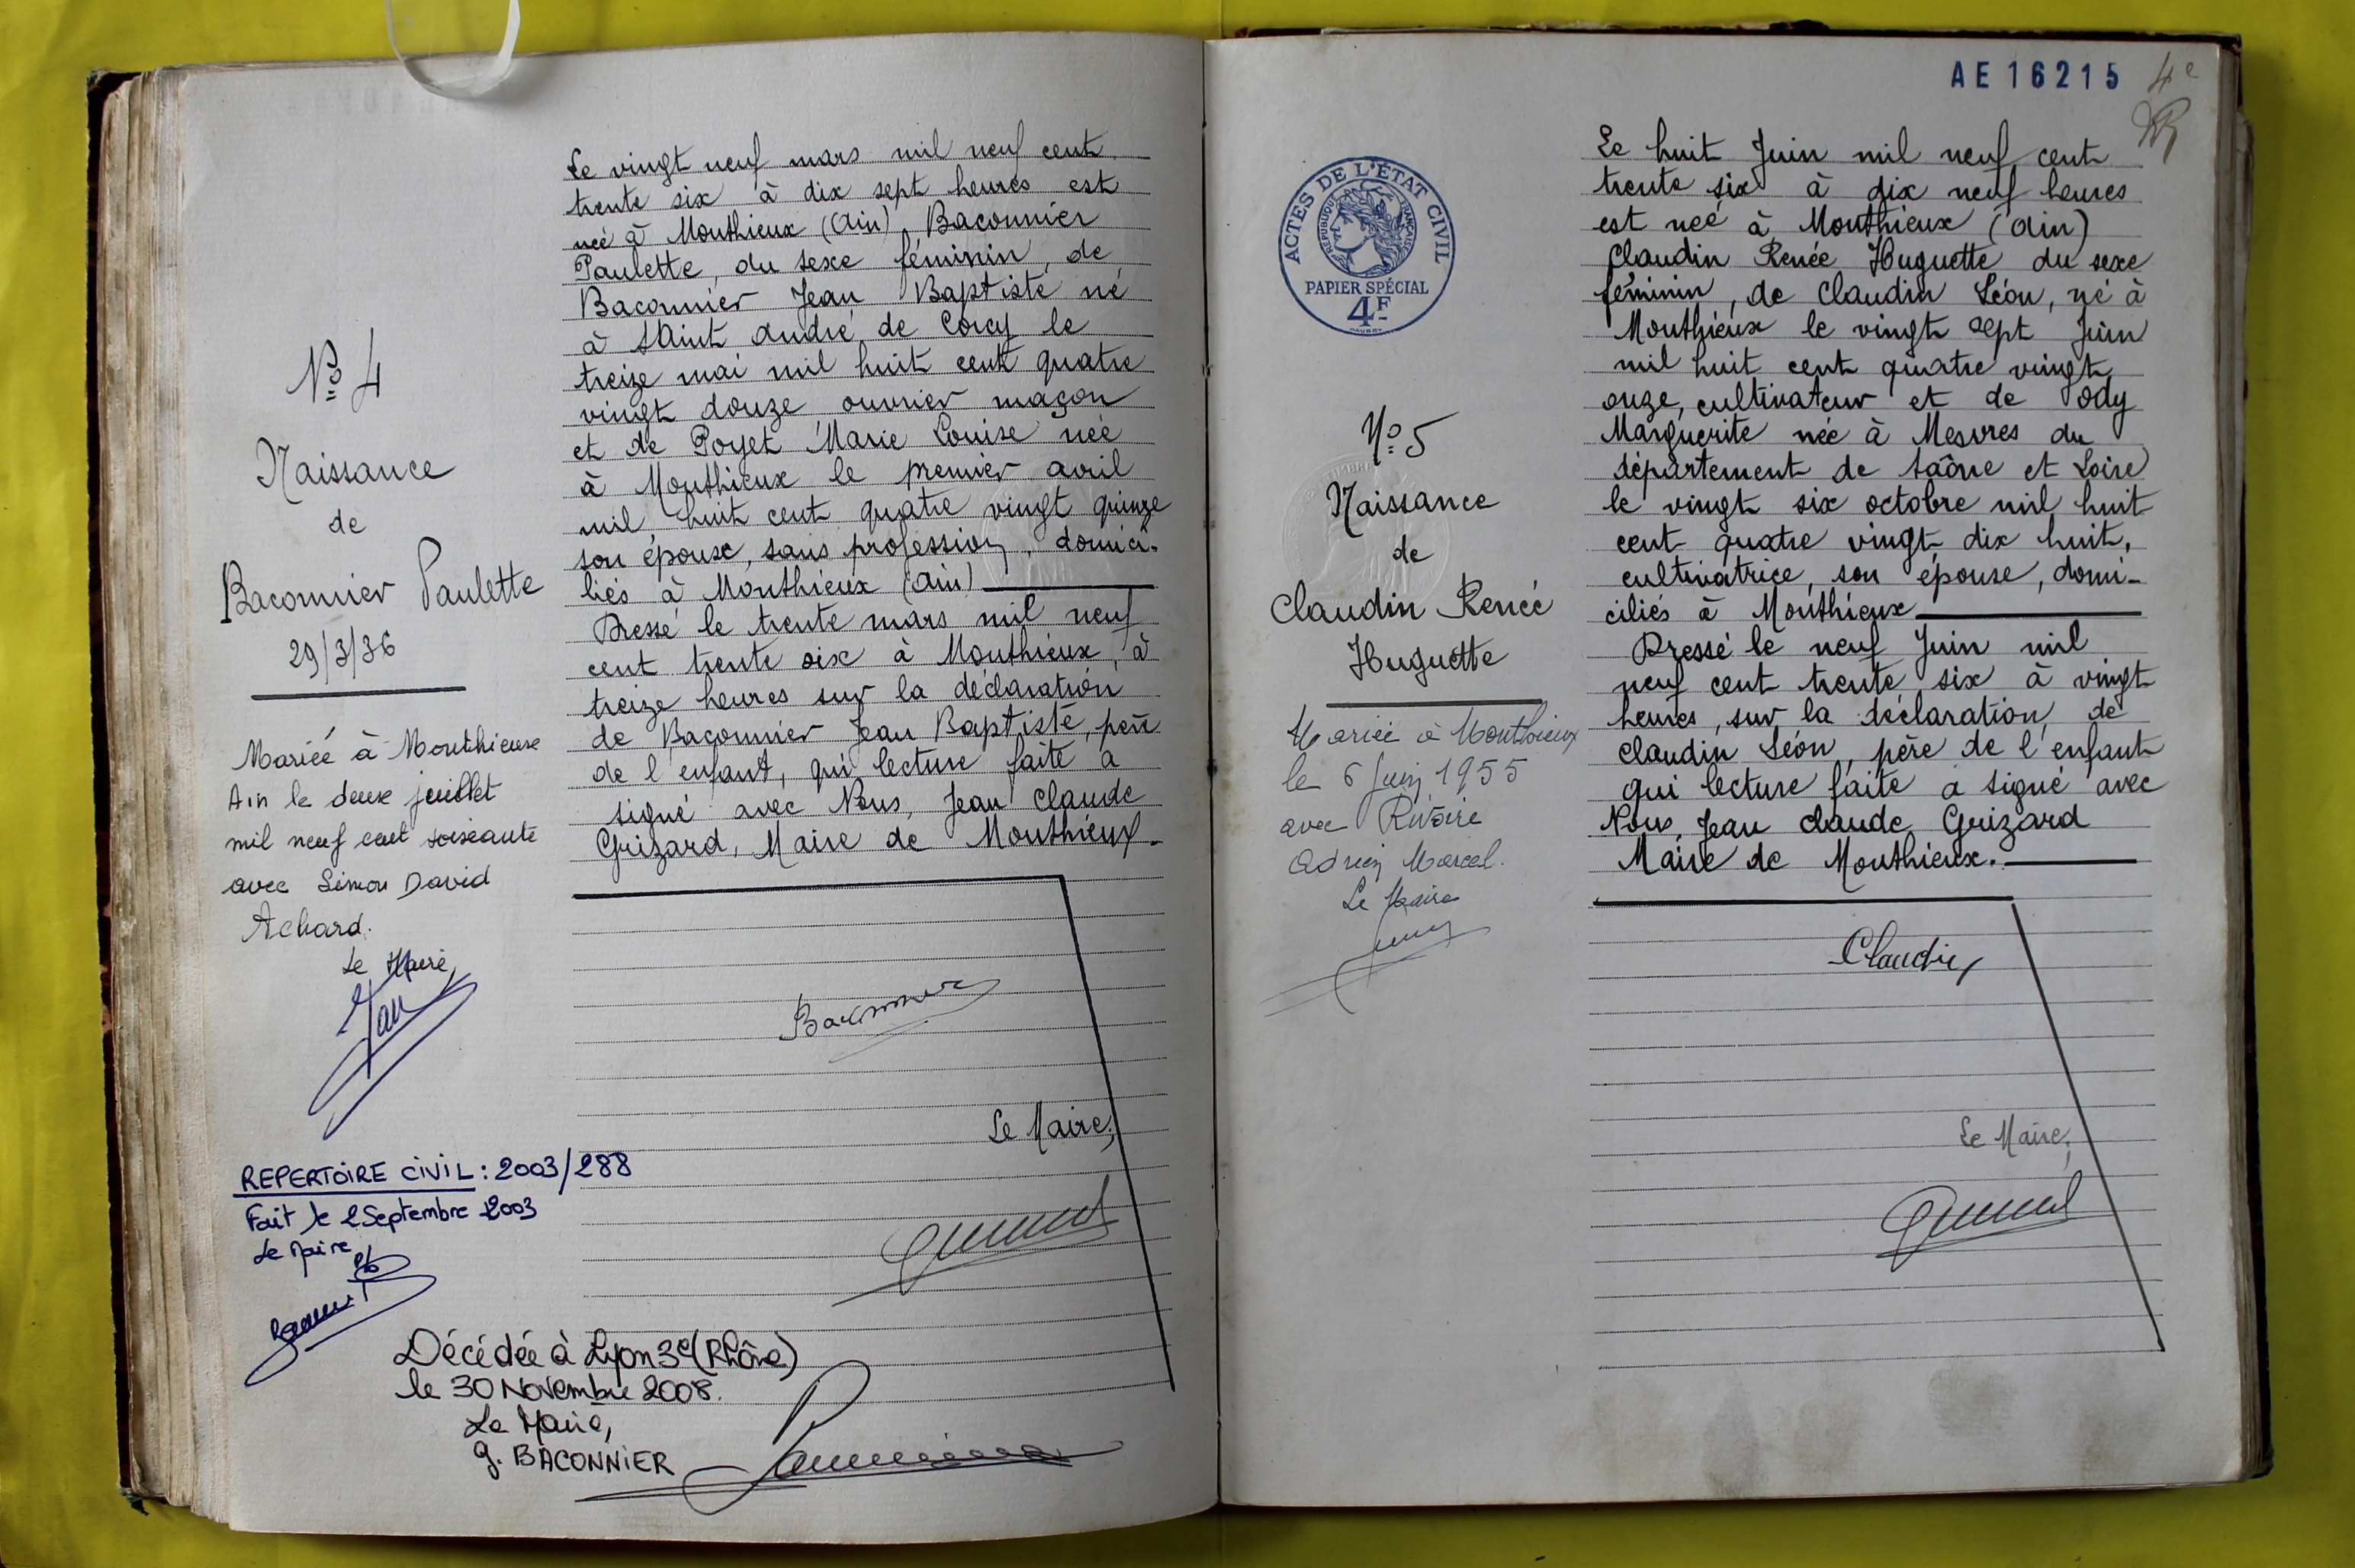 Le vingt neuf mars mil neuf cent
trente six à dix sept heures est
née à Monthieux (Ain) Baconnier
Paulette, du sexe féminin, de
Baconnier Jean Baptiste né
à Saint André de Corcy le
treize mai mil huit cent quatre
vingt douze ouvrier maçon
et de Poyet Marie Louise née
à Monthieux le premier avril
mil huit cent quatre vingt quinze
son épouse, sans profession, domici-
liés à Monthieux (Ain)
Dressé le trente mars mil neuf
cent trente six à Monthieux, à
treize heures sur la déclaration
de Baconnier Jean Baptiste, père
de l'enfant, qui lecture faite a
signé avec Nous, Jean Claude
Grizard, Maire de Monthieux.
Baconnier
Le Maire,
N° 4
Naissance
de
Baconnier Paulette
29/3/36
Mariée à Monthieux
Ain le deux juillet
mil neuf cent soixante
avec Simon David
Achard.
Le Maire,
REPERTOIRE CIVIL : 2003/288
Fait le 2 Septembre 2003
Le Maire
Décédée à Lyon 3e (Rhône)
le 30 Novembre 2008.
Le Maire,
G. BACONNIER
AE 16215
4e
ACTES DE L'ÉTAT CIVIL
RÉPUBLIQUE FRANÇAISE
PAPIER SPÉCIAL
4F
N° 5
Naissance
de
Claudin Renée
Huguette
Mariée à Monthieux
le 6 Juin 1955
avec Rivoire
Adrien Marcel.
Le Maire
Le huit Juin mil neuf cent
trente six à dix neuf heures
est née à Monthieux (Ain)
Claudin Renée Huguette du sexe
féminin, de Claudin Léon, né à
Monthieux le vingt sept Juin
mil huit cent quatre vingt
onze, cultivateur et de Ody
Marguerite née à Mesvres du
département de Saône et Loire
le vingt six octobre mil huit
cent quatre vingt dix huit,
cultivatrice, son épouse, domi-
ciliés à Monthieux
Dressé le neuf Juin mil
neuf cent trente six à vingt
heures, sur la déclaration de
Claudin Léon, père de l'enfant
qui lecture faite a signé avec
Nous, Jean Claude Grizard
Maire de Monthieux.
Claudin
Le Maire,